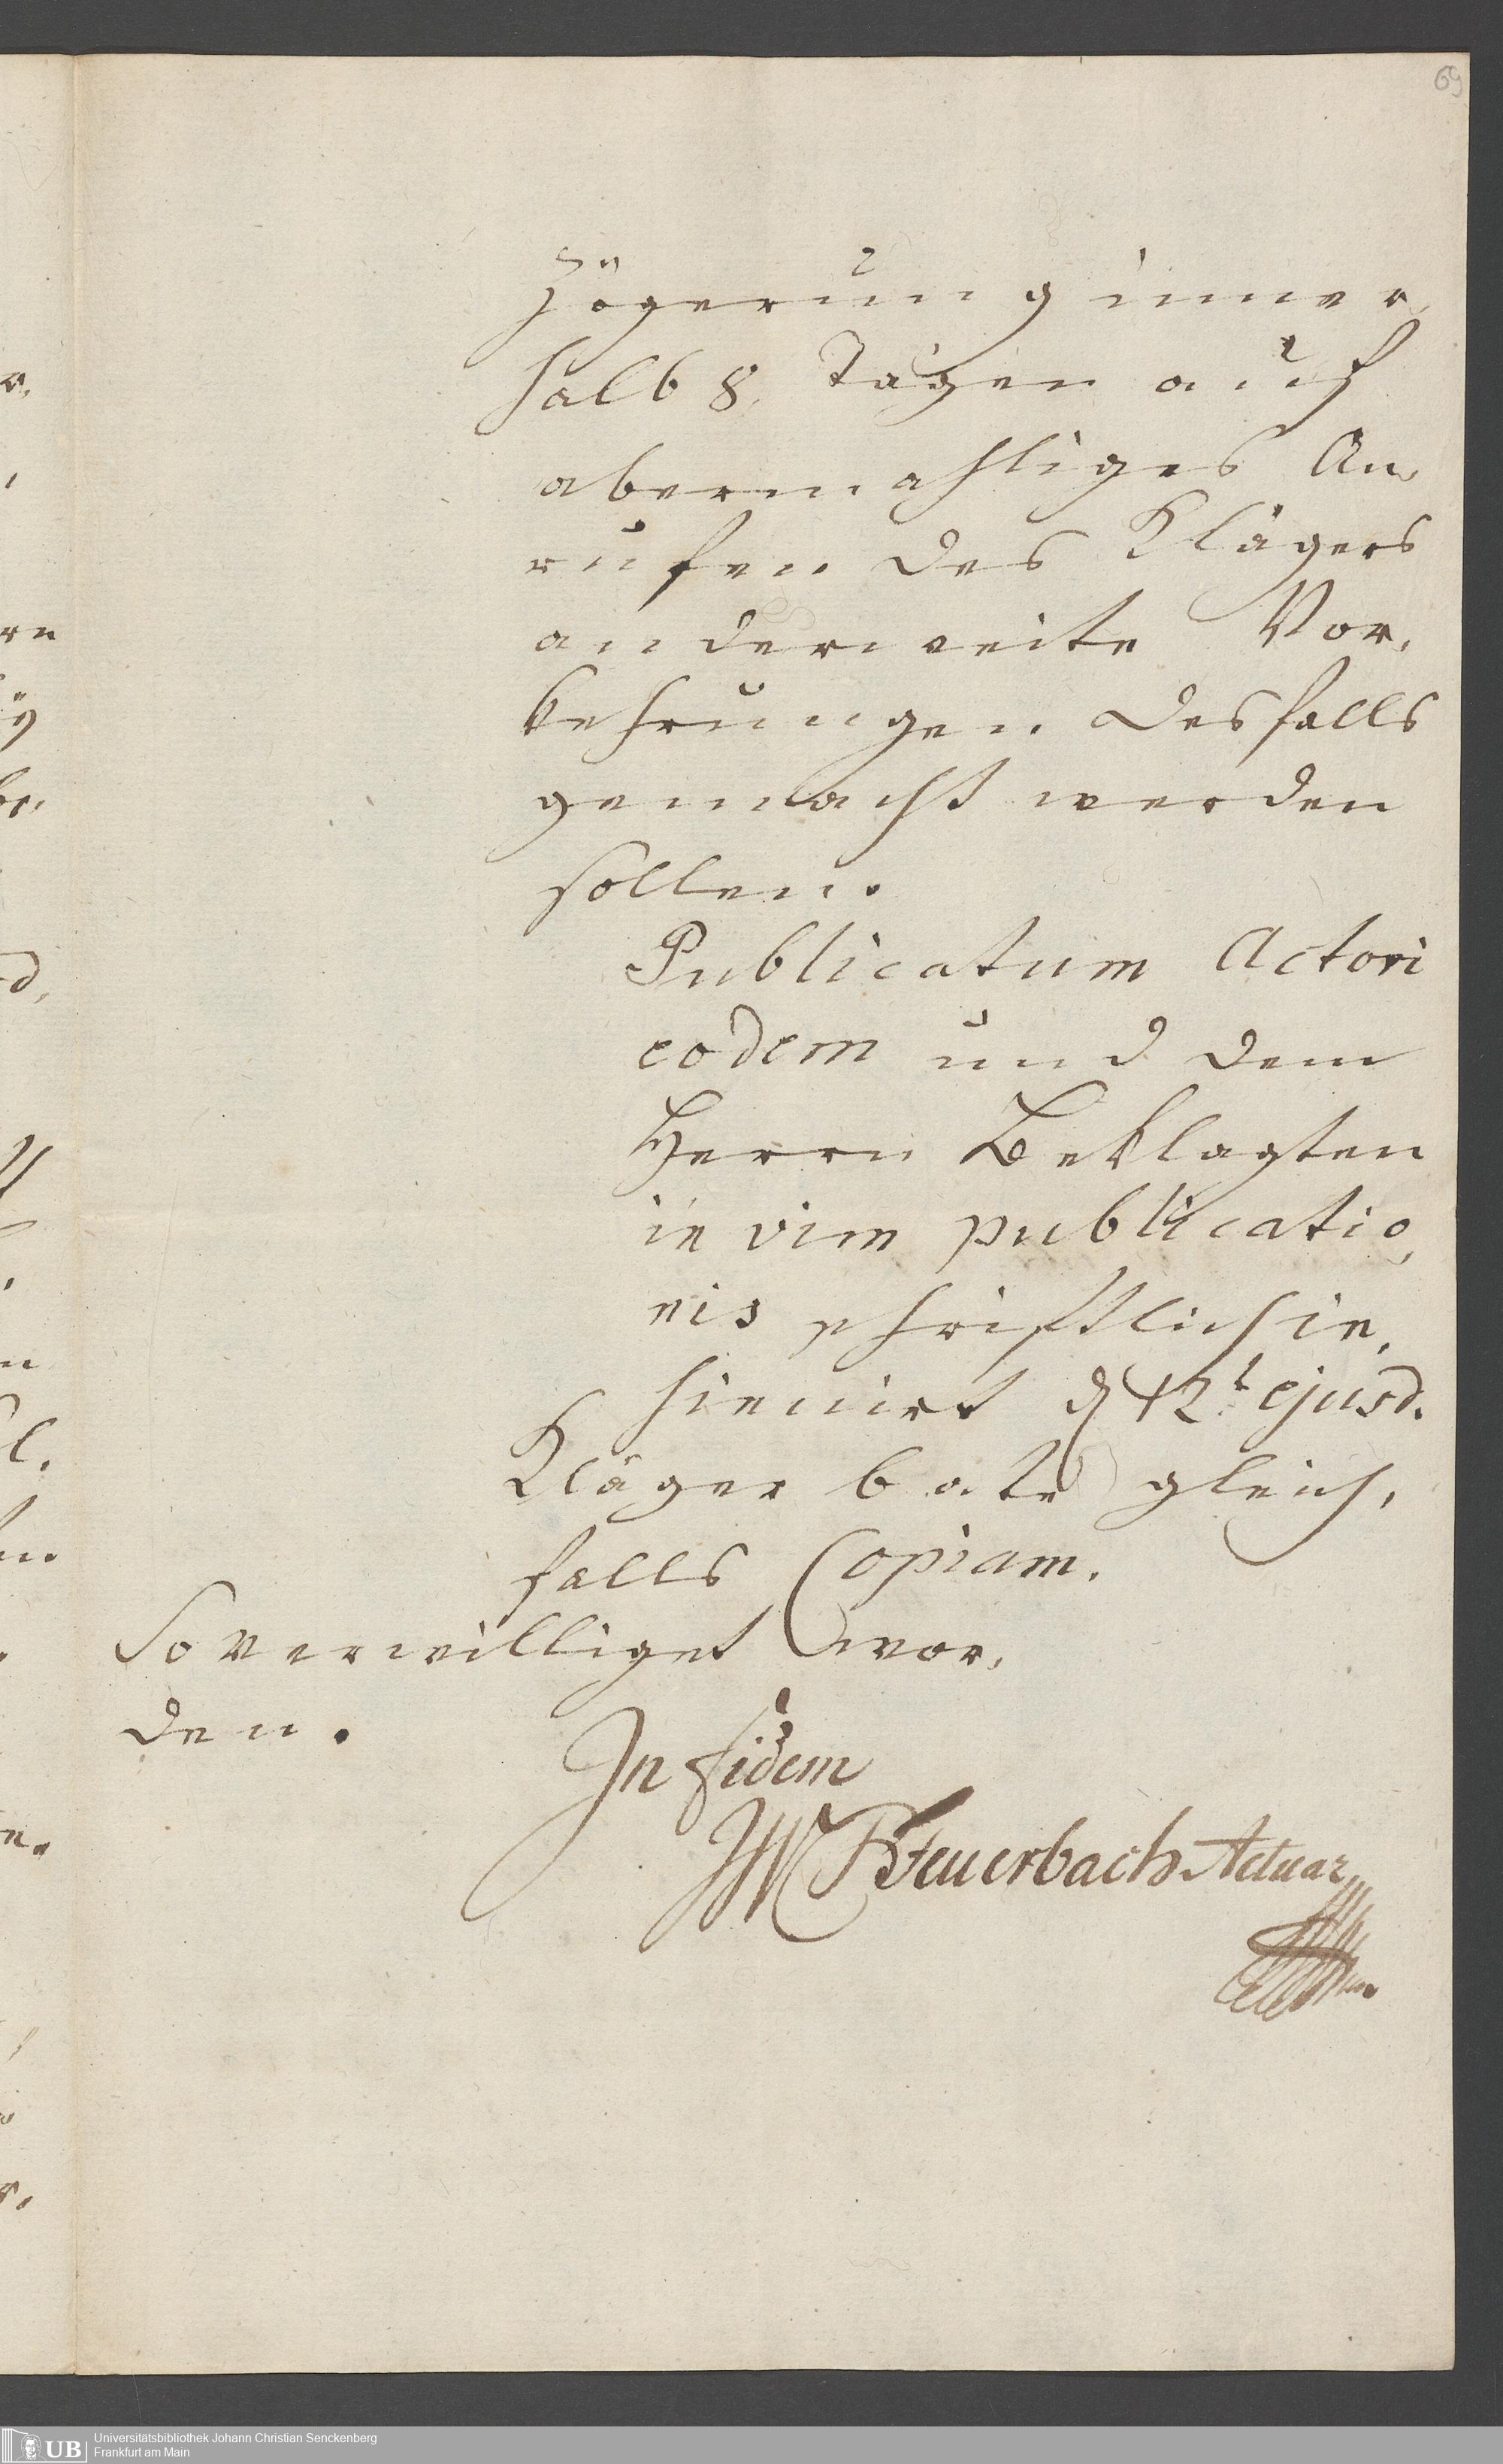 69
Zögerung inner,
halb 8. Tagen auf
abermahliges An,
rufen des Klägers
anderweite Vor,
kehrungen desfalls
gemacht werden
sollen.
Publicatum Actori
eodem und dem
Herrn Beklagten
in vim publicatio,
nis schriftlich in,
hiemirt d 12t. ejusd.
Kläger bate gleich,
falls Copiam.
So verwilliget wor,
den.
In fidem
Feuerbach Actuar
UB Universitätsbibliothek Johann Christian Senckenberg
Frankfurt am Main